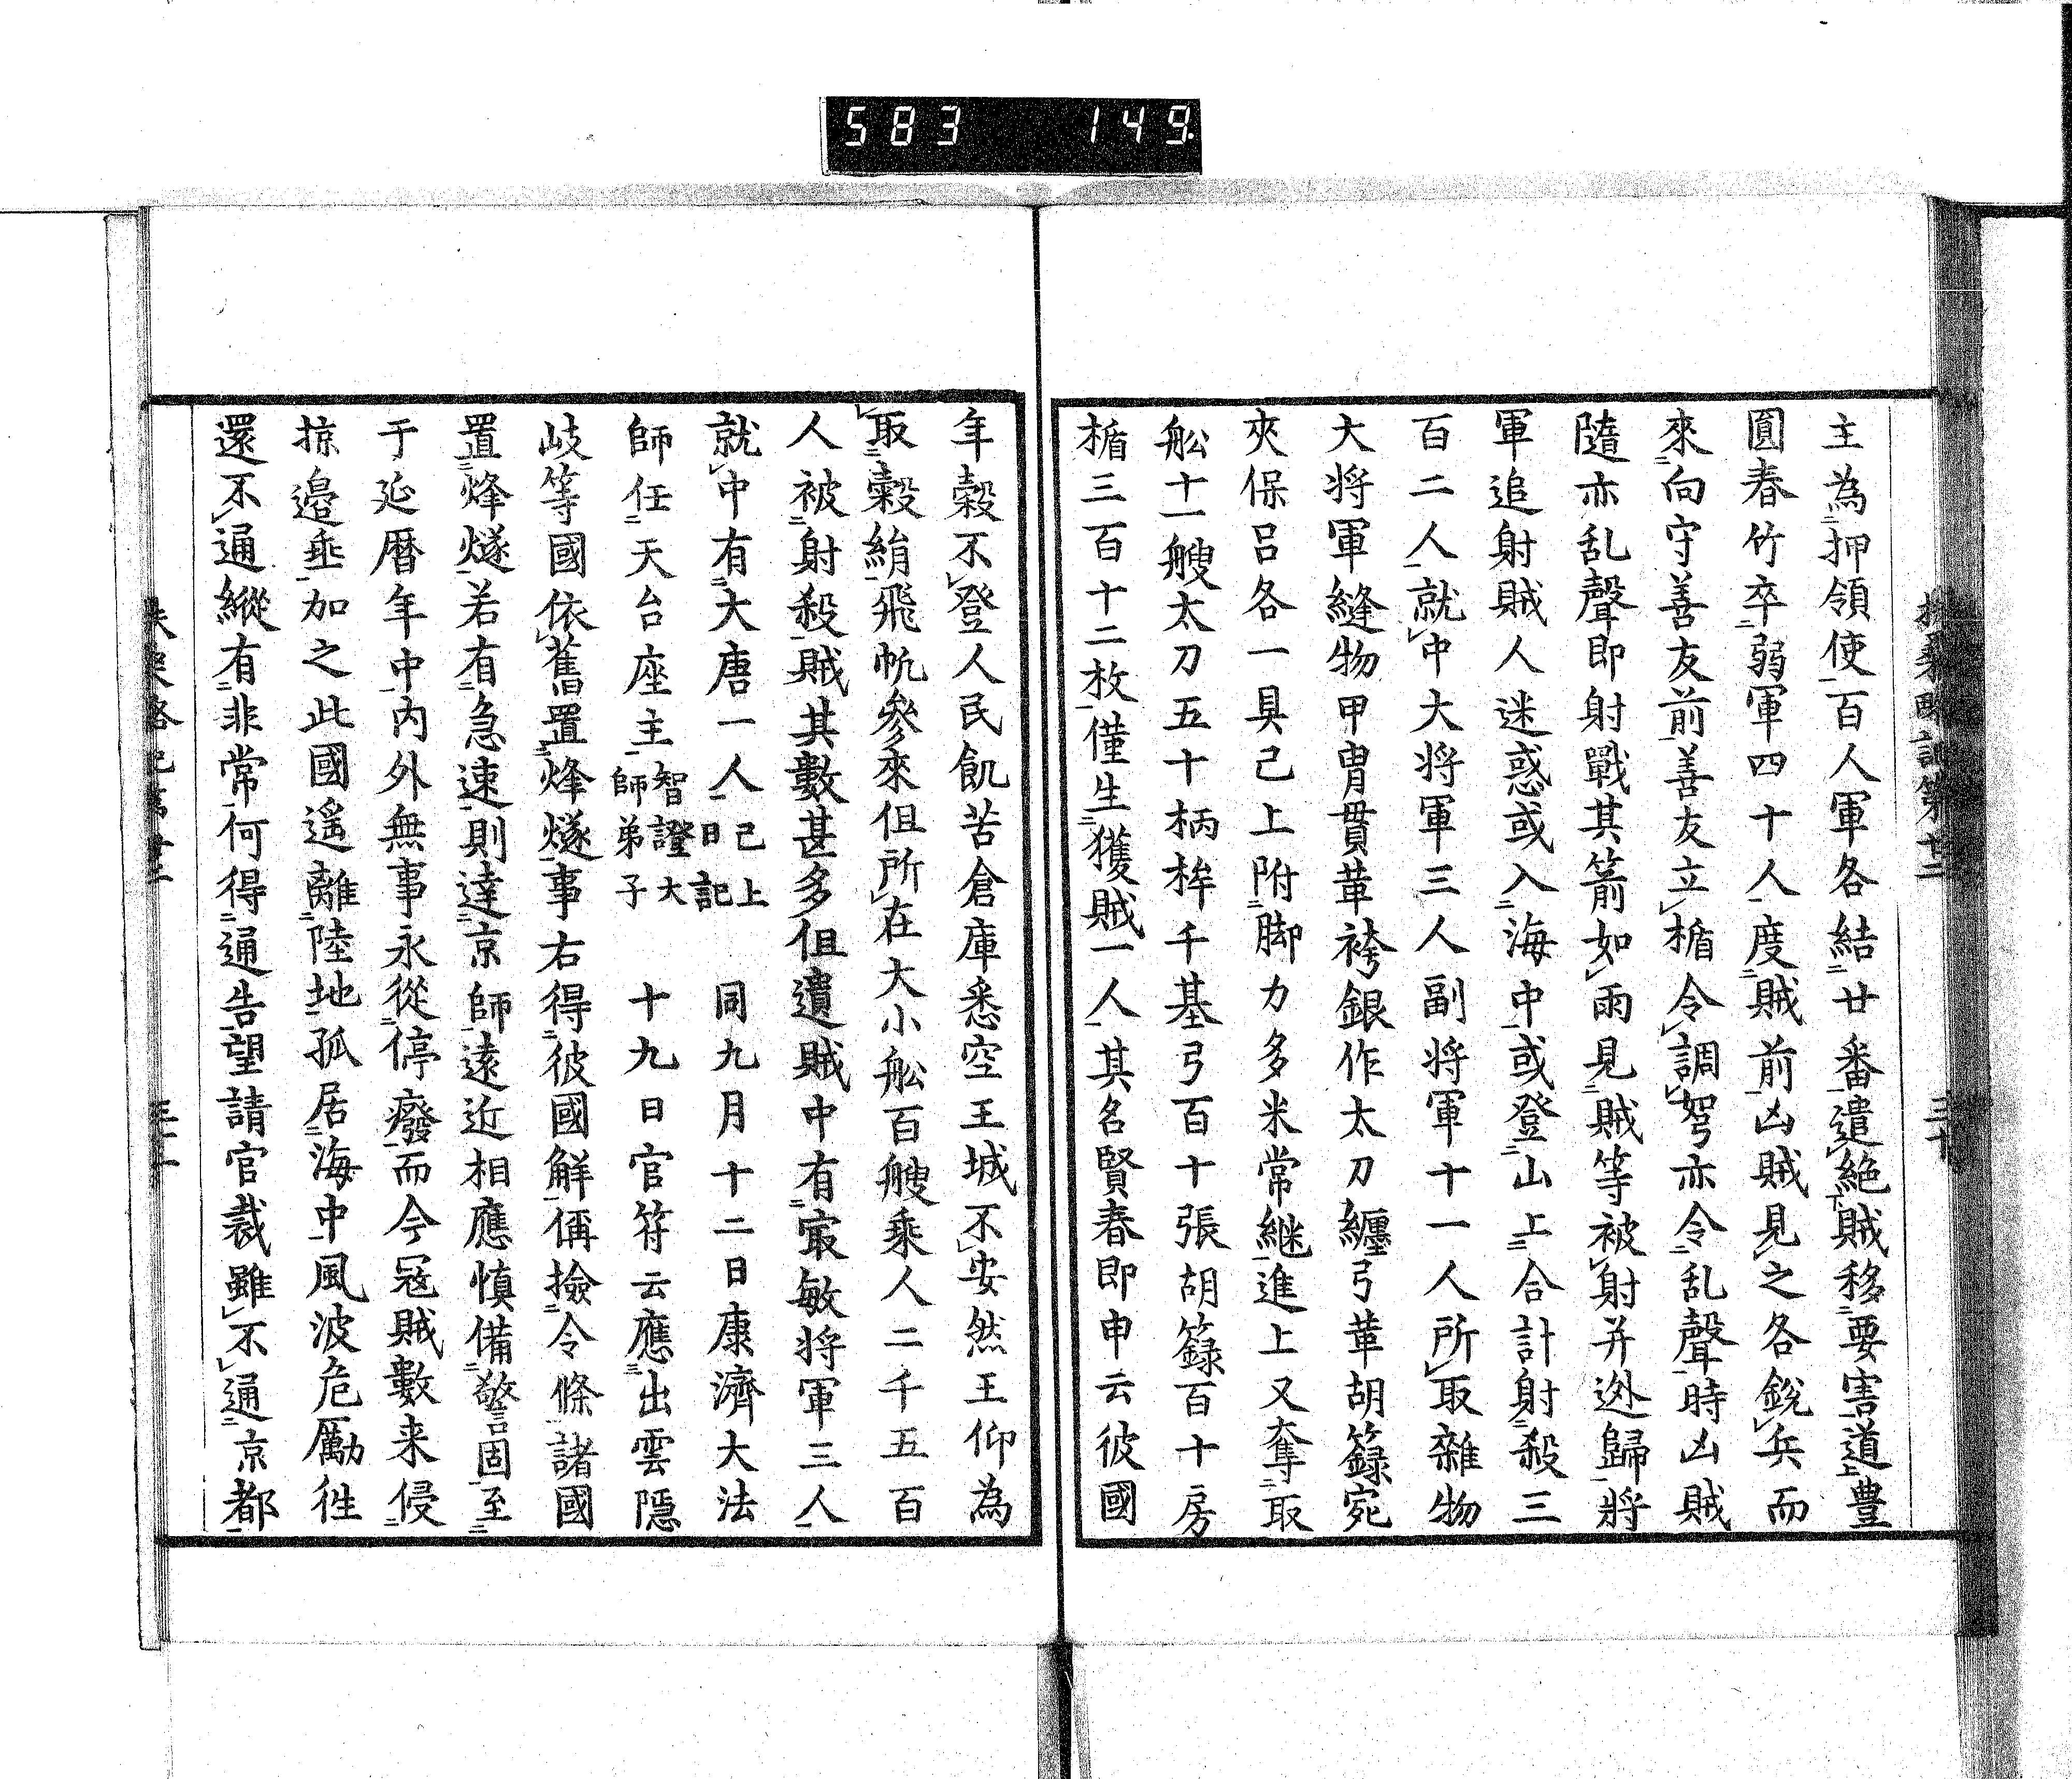 583 149
主為押領使百人軍各結廿番遣絶賊移要害道豊
圓春竹卒弱軍四十人度賊前凶賊見之各銳兵而
來向守善友前善友立楯令調弩亦令乱聲時凶賊
隨亦乱聲即射戰其箭如雨見賊等被射并迯歸將
軍追射賊人迷惑或入海中或登山上合計射殺三
百二人就中大将軍三人副将軍十一人所取雜物
大将軍縫物甲冑貫革袴銀作太刀纏弓革胡籙宛
夾保呂各一具已上附脚力多米常継進上又奪取
舩十一艘太刀五十柄桙千基弓百十張胡籙百十房
楯三百十二枚僅生獲賊一人其名賢春即申云彼國
年穀不登人民飢苦倉庫悉空王城不安然王仰為
取穀絹飛帆參來但所在大小舩百艘乘人二千五百
人被射殺賊其數甚多但遺賊中有㝡敏将軍三人
就中有大唐一人已上日記 同九月十二日康濟大法
師任天台座主智證大師弟子 十九日官符云應出雲隱
岐等國依舊置烽燧事右得彼國解偁撿令條諸國
置烽燧若有急速則達京師遠近相應慎備警固至
于延曆年中內外無事永從停廢而今寇賊數来侵
掠邊垂加之此國遥離陸地孤居海中風波危厲徃
還不通縱有非常何得通告望請官裁雖不通京都